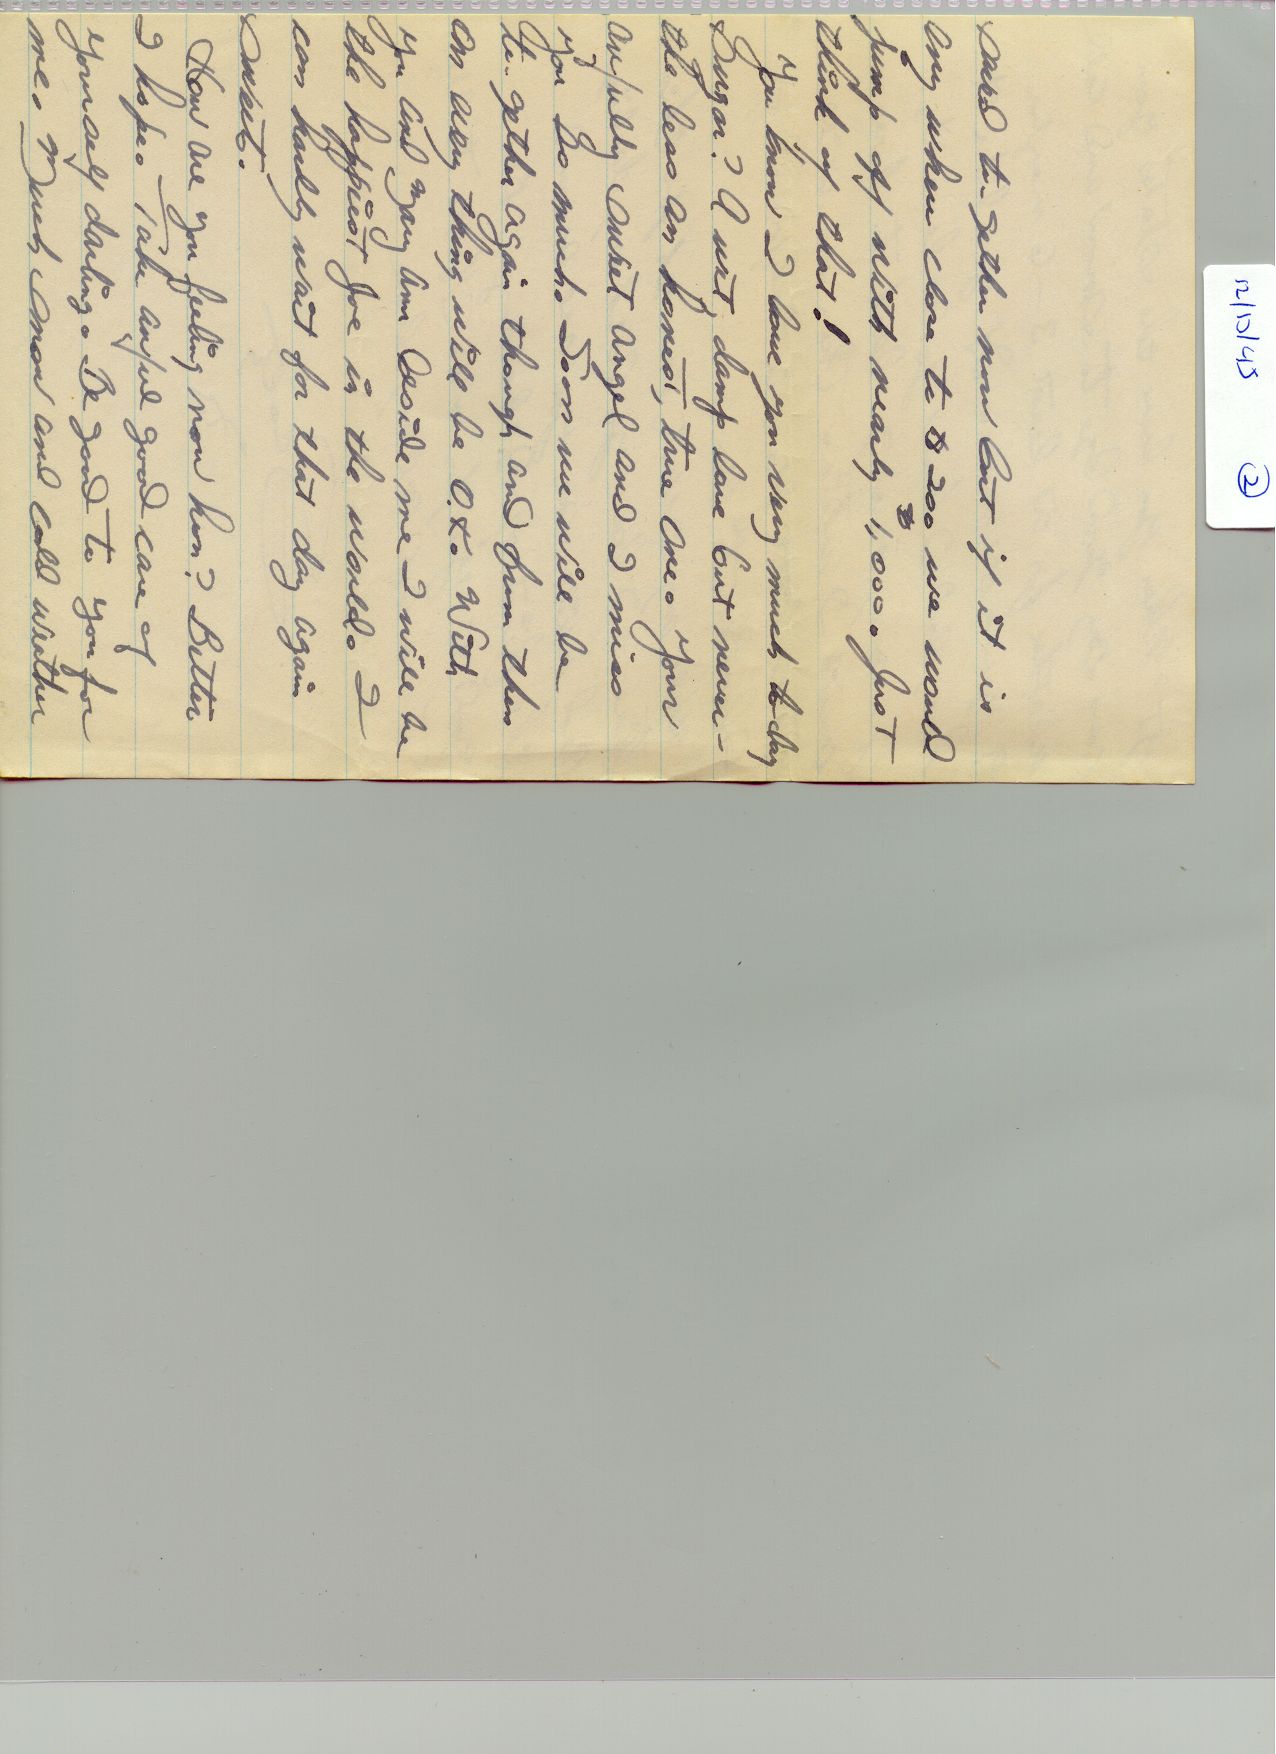 12/10/45 (2)
saved to-gether now but if it is
any where close to $200 we would
jump off with nearly $1,000. Just
think of that!
You know I love you very much to-day
Sugar? A wet, damp love but never-
the less an honest, true one. Your
awfully sweet angel and I miss
you so much. Soon we will be
to-gether again though and from then
on every thing will be O.K. With
you and Mary Ann beside me I will be
the happiest Joe in the world. I
can hardly wait for that day again
Sweet.
How are you feeling now hon? Better
I hope. Take awful good care of
yourself darling. Be good to you for
me. Much snow and cold weather